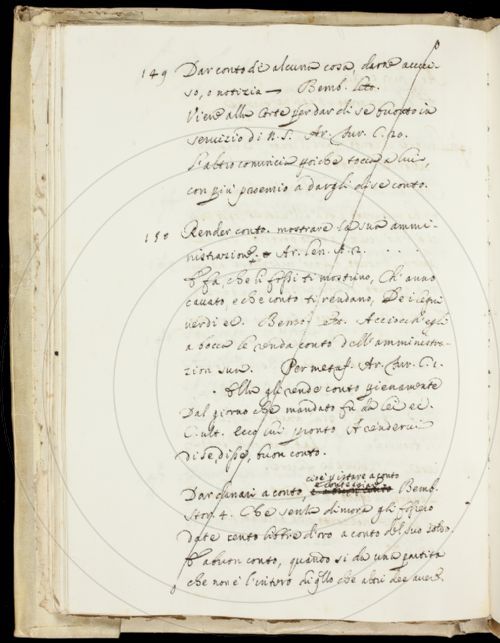 149 Dar conto di alcuna cosa, darne avvi-
so, o notizia — Bemb. lett.
Viene alla Corte per dar di se buon conto in
servizio di N. S. Ar. Fur. C. 20.
L'altro comincia poiche tocca a lui,
con più proemio a dargli di se conto.
150 Render conto. mostrare la sua ammi-
nistrazione. Ar. Len. A. 2.
E fa, che li ti mostrino, Ch'anno
cavato, e che conto ti rendano, De i
verdi ec. Bemb. Acciocch'egli
a bocca le renda conto dell'amministra-
zion sua. Per metaf. Ar. Fur. C. 1.
Ella gli rende conto pienamente
Dal giorno che mandato fu da lei ec.
C. ult. Ecco qui pronto A rendervi
Di se, disse, buon conto.
cioè prestare a conto
Dar danari a conto, Bemb.
Stor. 4. Che senza dimora gli fossero
date cento libbre d'oro a conto del suo soldo.
E a buon conto, quando si dà una partita
che non è l'intero di quello che altri dee avere.